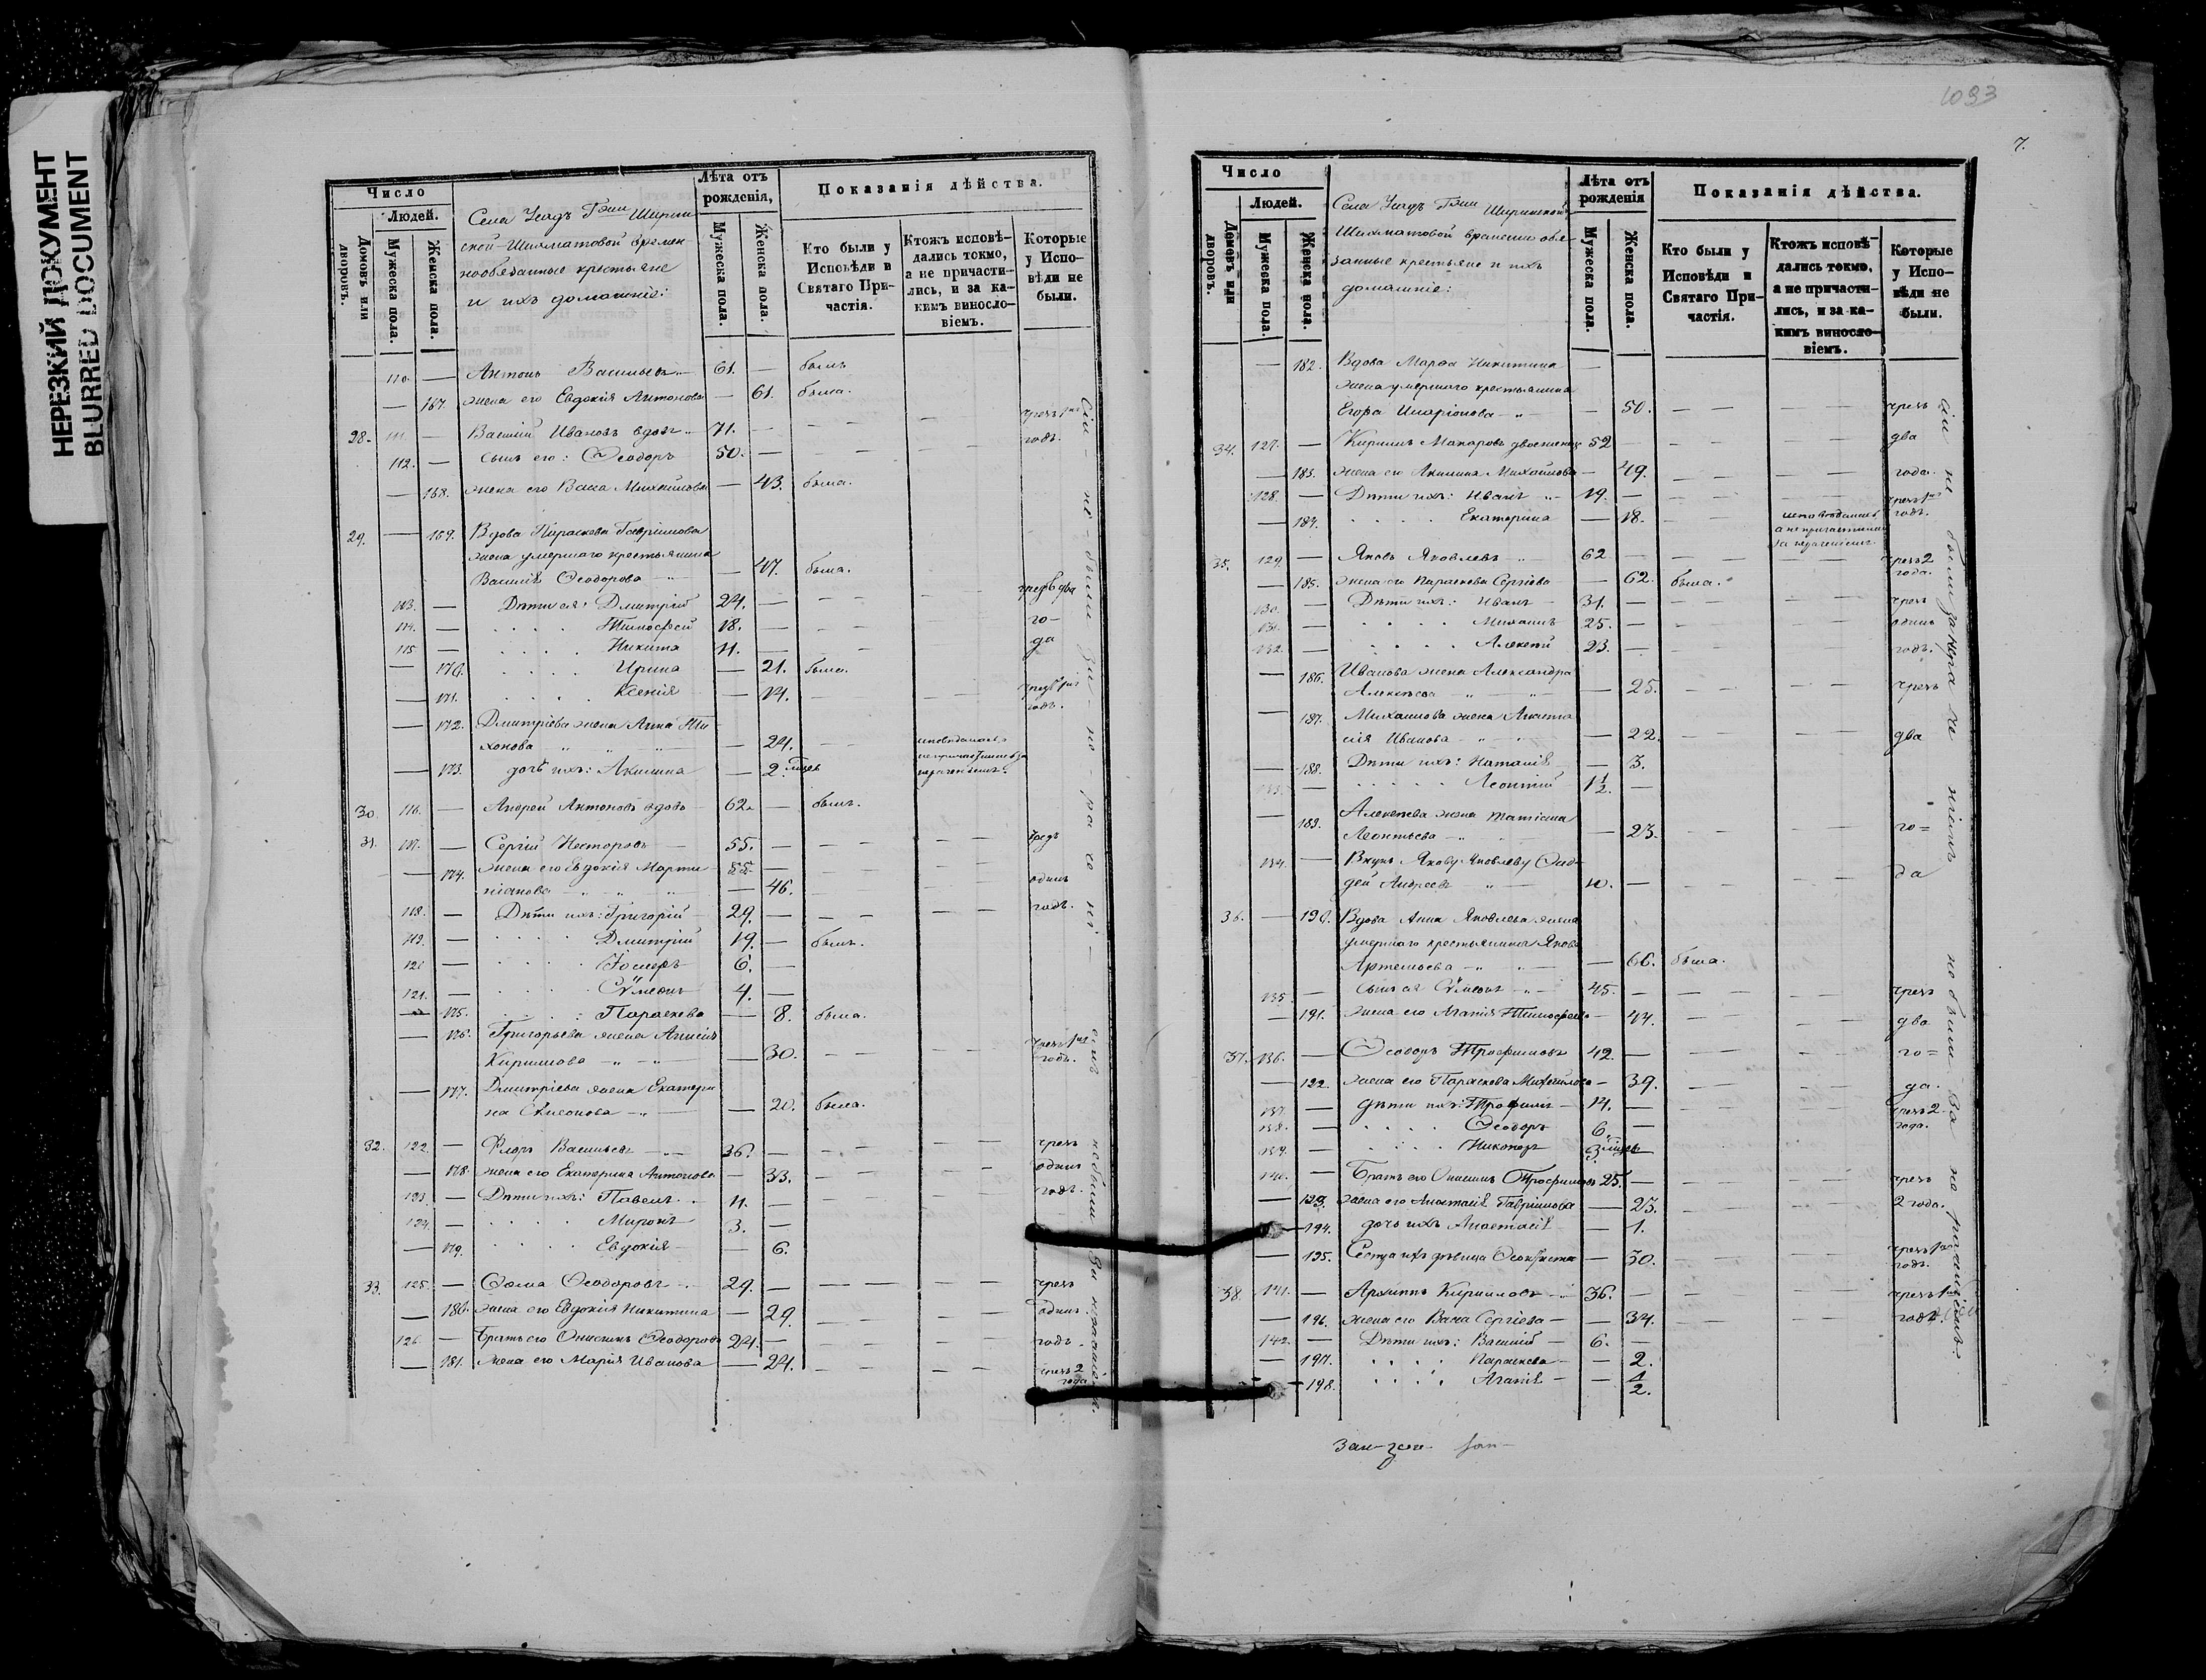 НЕРЕЗКИЙ ДОКУМЕНТ
BLURRED DOCUMENT
Число
Людей.
Домовъ или дворовъ.
Мужеска пола.
Женска пола.
Села Усадъ Гжи Ширин
ской-Шихматовой времен
нообязанные крестьяне
и ихъ домашніе:
Лѣта отъ рожденія,
Мужеска пола.
Женска пола.
Показанія дѣйства.
Кто были у Исповѣди и Святаго При-частія.
Ктожъ исповѣ-дались токмо, а не причасти-лись, и за ка-кимъ винословіемъ.
Которые у Испо-вѣди не были.
110. — Антонъ Васильевъ 61. — былъ
— 167. жена его Евдокія Антонова — 61. была.
28. 111. — Василій Ивановъ вдовъ 71. — — — чрезъ 1нъ
112. — сынъ его: Ѳеодоръ 50. — — — годъ.
— 168. жена его Васса Михайлова — 43. была.
29. — 169. Вдова Параскева Гаврилова
жена умершаго крестьянина
Василія Ѳеодорова — 47. была.
113. — Дѣти ея: Дмитрій 24. — — — чрезъ два
114. — Тимоѳей 18. — — — го-
115 — Никита 11. — — — да
— 170. Ирина — 21. была.
— 171. Ксенія — 14. — — чрезъ 1нъ годъ.
— 172. Дмитріева жена Анна Ти
хонова — 24. — исповѣдалась
— 173. дочь ихъ: Акилина — 2. мцевъ
30. 116. — Андрей Антоновъ вдовъ 62. — былъ.
31. 117. — Сергій Несторовъ — 55. — — — чрезъ
— 174. жена его Евдокія Марти 55.
ніанова — 46. — — одинъ
118. — Дѣти ихъ: Григорій 29. — — — годъ.
119. — Дмитрій 19. — былъ.
120 — Іосифъ 6. —
121. — Сѵмеонъ 4. —
— 175. Параскева — 8. была.
— 176. Григорьева жена Анисія
Кирилова — 30. — — чрезъ 1нъ годъ.
— 177. Дмитріева жена Екатери
на — 20. была.
32. 122. — Флоръ Васильевъ — 36. — — — чрезъ
— 178. жена его Екатерина Антонова — 33. — — одинъ
123. — Дѣти ихъ: Павелъ 11. — годъ.
124. — Миронъ 3. —
— 179. Евдокія — 6.
33. 125. — Ѳома Ѳеодоровъ 29. — — — чрезъ
— 180. жена его Евдокія Никитина — 29. — — одинъ
126 — Братъ его Онисимъ Ѳеодоровъ 24. — — — годъ.
— 181. жена его Марія Иванова — 24. — — чрезъ 2 года
сіи не-были за не-ра-
не были за нераденіемъ.
1093
7.
Число
Людей.
Домовъ или дворовъ.
Мужеска пола.
Женска пола.
Села Усадъ Гжи Ширинской
Шихматовой временно обя-
занные крестьяне и ихъ
домашніе:
Лѣта отъ рожденія
Мужеска пола.
Женска пола.
Показанія дѣйства.
Кто были у Исповѣди и Святаго При-частія.
Ктожъ исповѣ-дались токмо, а не причасти-лись, и за ка-кимъ винословіемъ.
Которые у Испо-вѣди не были.
— 182. Вдова Марѳа Никитина —
жена умершаго крестьянина
Егора Иларіонова — 50. — — чрезъ
34. 127. — Кирилъ Макаровъ двоеженецъ 52 — — — два
— 183. жена его Акилина Михайлова — 49. — — года.
128. — Дѣти ихъ: Иванъ 19. — — — чрезъ 1нъ
— 184. Екатерина — 18. — исповѣдалась годъ.
а не причастилась
35. 129. — Яковъ Яковлевъ 62 — — — чрезъ 2 года.
— 185. жена его Параскева Сергіева — 62. была.
130. — Дѣти ихъ: Иванъ 31. — — — чрезъ
131. — Михаилъ 25. — — — одинъ
132. — Алексѣй 23. — — — годъ.
— 186. Иванова жена Александра
Алексѣева — 25. — — чрезъ
— 187. Михаилова жена Анаста
сія Иванова — 22. — — два
— 188. Дѣти ихъ: Наталія — 3.
133. — Леонтій 1½ —
— 189. Алексѣева жена Татіана
Леонтьева — 23. — — го=
134. — Внукъ Якову Яковлеву Ѳад-
дей Андреевъ 10. — — — да
36. — 190. Вдова Анна Яковлева жена
умершаго крестьянина Якова
Артемьева — 66. была.
135. — Сынъ ея Сѵмеонъ 45. — — — чрезъ
— 191. жена его Агапія Тимоѳеева — 44. — — два
37. 136. — Ѳеодоръ Трофимовъ 42. — — — го=
— 192. жена его Параскева Михайлова — 39. — — да.
137. — дѣти ихъ: Трофимъ — 14. — — — чрезъ 2 года.
138. — Ѳеодоръ 6. —
139. — Никаноръ 3 мцевъ —
140. — Братъ его Онисимъ Трофимовъ 25. — — — чрезъ
— 193. жена его Анастасія Гаврилова — 23. — — 2 года.
— 194. дочь ихъ Анастасія — 1.
— 195. Сестра ихъ дѣвица Ѳеоктиста — 30. — — чрезъ 1нъ годъ.
38. 141. — Архиппъ Кириловъ 36. — — — чрезъ 1нъ
— 196. жена его Васса Сергіева — 34. — — годъ.
142. — Дѣти ихъ: Василій 6. —
— 197. Параскева — 2.
— 198. Агапія — ½.